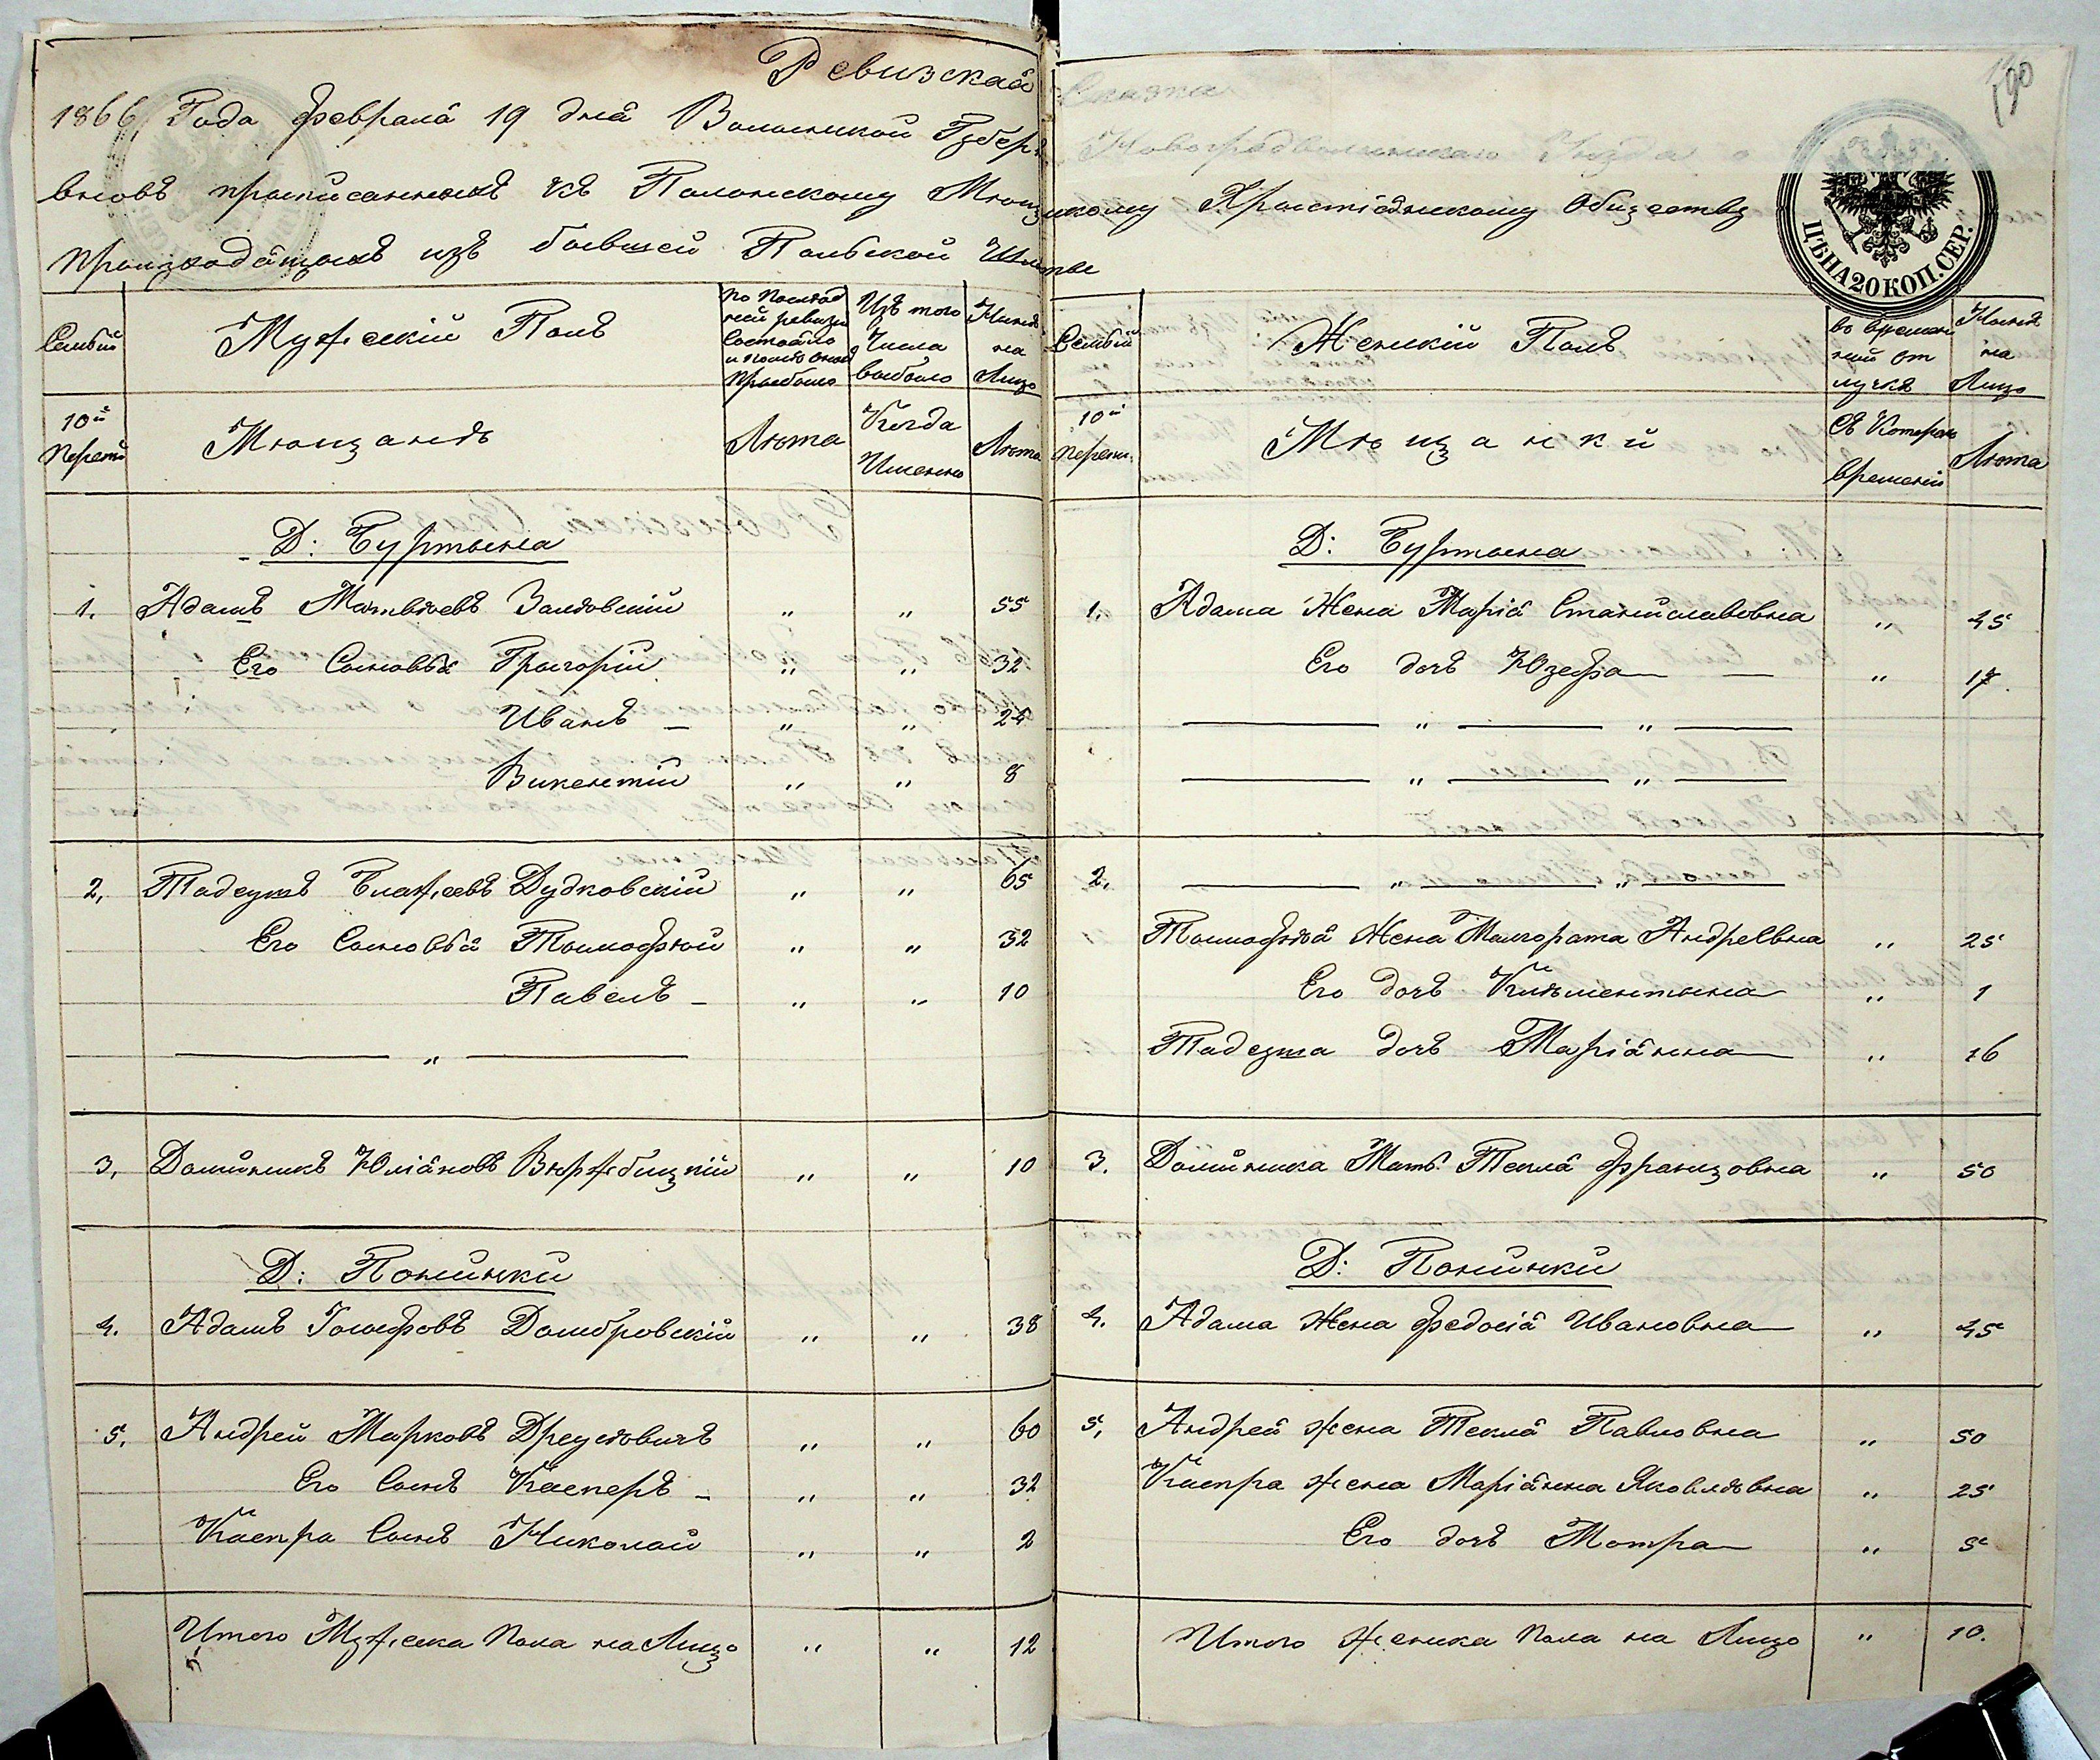 Ревизская Сказка
190
1866 Года февраля 19 дня Волынской Губер: Новоградволынскаго Уезда о
вновь приписанныхъ къ Полонскому Мещанскому Християнскому Обществу
произходящихъ изъ бывшей Польской Шляхты
ЦѢНА 20 КОП. СЕР.
Семьи
Мужескій Полъ
По послѣд
ней ревизіи
состояло
и после оной
прибыло
Изъ того
Числа
выбыло
Нынѣ
на
Лицо
Семьи
Женскій Полъ
во времян
ной от
лучкѣ
Нынѣ
на
Лицо
10й
Переп:
Мѣщанѣ
Лѣта
Когда
Именно
Лѣта
10й
Перепи:
Мѣщанки
Съ Котораго
Времени
Лѣта
Д: Буртына
Д: Буртына
1. Адамъ Матвѣевъ Залѣвскій " " 55
1. Адама Жена Марія Станиславовна " 45
Его Сыновья Григорій " " 32
Его дочь Юзефа — " 17.
Иванъ — " " 24
— " — " —
Викентій " " 8
— " — " —
2, Тадеушъ Блажеевъ Дудковскій " " 65
2, — " — " —
Его Сыновья Тимофѣй " " 32
Тимофѣя Жена Малгората Андреевна " 25
Павелъ — " " 10
Его Дочь Клѣментына " 1
— " —
Тадеуша дочь Маріянна " 16
3, Доминикъ Юліяновъ Вержбицкій " " 10
3. Доминика Мать Текля Францовна " 50
Д: Понинки
Д: Понинки
4. Адамъ Іосифовъ Домбровскій " " 38
4. Адама Жена Федосія Ивановна " 45
5. Андрей Марковъ Дреусовичъ " " 60
5, Андрея жена Текля Павловна " 50
Его Сынъ Касперъ — " " 32
Каспра жена Маріянна Яковлѣвна " 25
Каспра Сынъ Николай " " 2
Его дочь Мотра " 5
Итого Мужеска Пола на Лицо " " 12
Итого женска Пола на Лицо " 10.